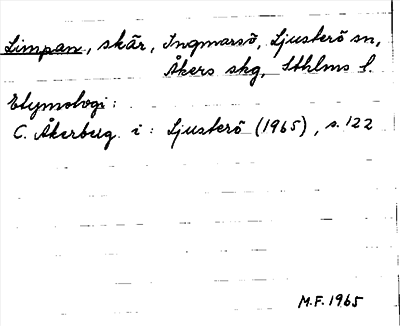 Limpan, skär, Ingmarsö, Ljusterö sn,
Åkers skg, Sthlms l.
Etymologi:
C. Åkerberg i: Ljusterö (1965), s. 122
M.F. 1965